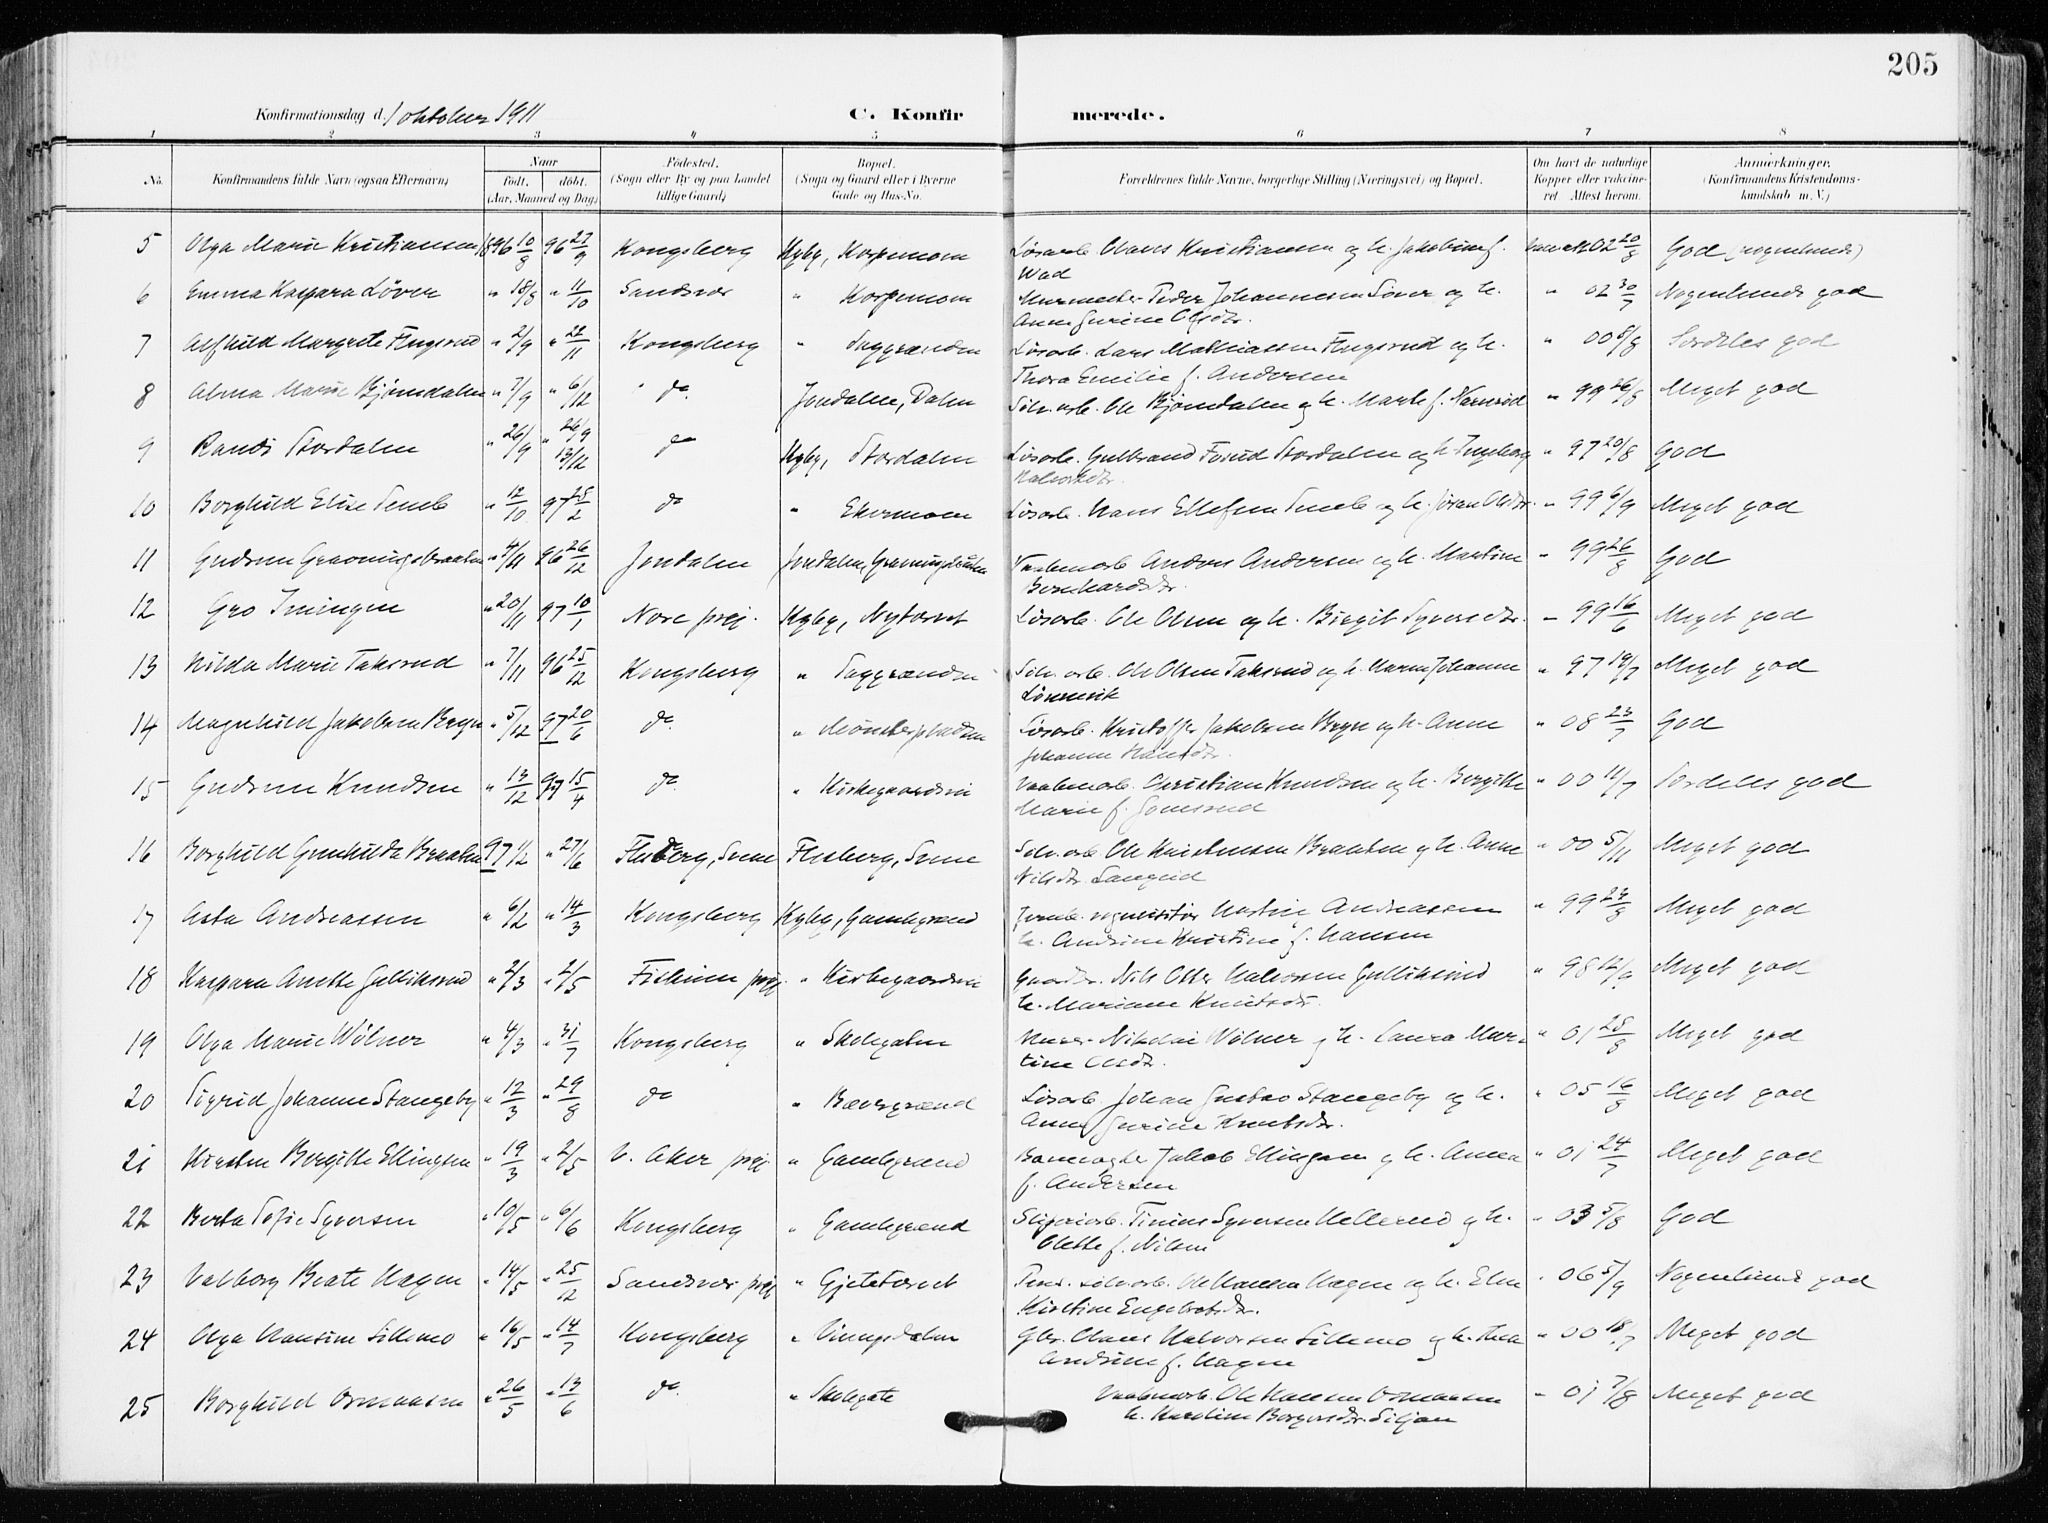 205
Konfirmationsdag d. 1 oktober 1911
C. Konfirmerede.
1 2 3 4 5 6 7 8
No. Konfirmandens fulde Navn (ogsaa Efternavn) Naar født, døbt, (Aar, Maaned og Dag) Fødested. (Sogn eller By og paa Landet tillige Gaard) Bopæl. (Sogn og Gaard eller i Byerne Gade og Hus-No. Forældrenes fulde Navne, borgerlige Stilling (Næringsvei) og Bopæl. Om havt de naturlige Kopper eller vaccineret Attest herom. Anmærkninger. (Konfirmandens Kristendomskundskab m. V.)
5 Olga Marie Kristiansen 1896 10/8 96 27/9 Kongsberg Kgbg, Korpemoen Løsarb. Claus Kristiansen og h. Jakobine f. 02 20/8 God (nogenlunde)
Wad
6 Emma Kaspara Løver " 18/8 " 11/10 Sandsvær " Korpemoen Murmester Peder Johannesen Løver og h. " 02 30/7 Nogenlunde god
Anne Gurine Olsdtr.
7 Alfhild Margrete Flugsrud " 2/9 " 22/11 Kongsberg " Saggrænden Løsarb. Lars Mathiassen Flugsrud og h. " 00 8/8 Særdeles god
Thora Emilie f. Andersen
8 Alma Marie Bjørndalen " 7/9 " 6/12 " do. Jondalen, Dalen Sølv.arb. Ole Bjørndalen og h. Marte f. " 99 26/8 Meget god
9 Randi Stordalen " 26/9 " 26/9 13/12 do Kgbg, Stordalen Løsarb. Gulbrand Stordalen og h. Ingeborg " 97 20/8 God
Halvorsdtr.
10 Borghild Elise Temb " 12/10 97 28/2 do " Ekermoen Løsarb. Hans Ellefsen Temb og h. Jøran Olsdtr. " 99 6/9 Meget god
11 Gudrun Gravningsbraaten " 4/11 96 26/12 Jondalen Jondalen, Gravningsbraaten Vaabenarb Anders Andersen og h. Martine " 99 26/8 God
Bernhardsdtr.
12 Gro Imingen " 20/11 97 10/1 Nore prgj. Kgbg, Nytorvet Løsarb. Ole Olsen og h. Birgit Syversdtr. " 99 16/6 Meget god
13 Hilda Marie Taksrud " 7/11 96 25/12 Kongsberg " Saggrænden Sølv.arb. Ole Olsen Taksrud og h. Maren Johanne " 97 19/7 Meget god
Lønnevik
14 Magnhild Jakobsen Bryn " 5/12 97 20/6 do. " Løsarb. Kristoffer Jakobsen Bryn og h. Anne " 08 23/7 God
Johanne Hansdtr.
15 Gudrun Knudsen " 13/12 97 15/4 do. " Kirkegaardsvei Vaabenarb. Christian Knudsen og h. Bergitte " 00 11/7 Særdeles god
Marie f.
16 Borghild Gunhilda Braaten 97 1/2 " 27/6 Flesberg, Svene Flesberg, Svene Sølv.arb Ole Kristensen Braaten og h. Anne " 00 5/11 Meget god
Nilsdtr.
17 Asta Andreassen " 6/2 " 14/3 Kongsberg Kgbg, Gamlegrænd Jernb. Martin Andreassen " 99 24/8 Meget god
h. Andrine Kristine f. Hansen
18 Kaspara Anette Gulliksrud " 2/3 " 2/5 prgj. " Kirkegaardsvei Gaardbr. Nils Otter Halvorsen Gulliksrud " 98 12/9 Meget god
h. Mariane Knutsdtr.
19 Olga Marie Wølner " 4/3 " 31/7 Kongsberg " Skolegaten Murer Nikolai Wølner og h. Laura Mar- " 01 28/8 Meget god
tine Olsdtr.
20 Sigrid Johanne Stangeby " 12/3 " 29/8 do " Bævergrænd Løsarb. Johan Gustav Stangeby og h. " 05 16/8 Meget god
Anne Gurine Knutsdtr.
21 Kirsten Bergitte Ellingsen " 19/3 " 2/5 V. Aker prgj " Gamlegrænd Banevogter Jakob Ellingsen og h. Anna " 01 24/7 Meget god
f. Andersen
22 Berta Sofie Syversen " 10/5 " 6/6 Kongsberg " Gamlegrænd Sliperiarb. Syversen Hellerud og h. " 03 5/8 God
Olette f. Nilsen
23 Valborg Beate Hagen " 14/5 " 25/12 Sandsvær prgj " Gjetetorvet Pens. sølvarb. Ole Hansen Hagen og h. Elen " 06 5/9 Nogenlunde god
Kirstine Engebretsdtr.
24 Olga Hansine Sillemo " 16/5 " 14/7 Kongsberg " Vinnesdalen Gbr. Claus Halvorsen Sillemo og h. Thea " 00 18/7 Meget god
Andrine f. Hagen
25 Borghild Ormaasen " 26/5 " 13/6 do. " Skolegate Vaabenarb. Ole Hansen Ormaasen " 01 7/8 Meget god
h. Karoline Borgersdtr. Siljan